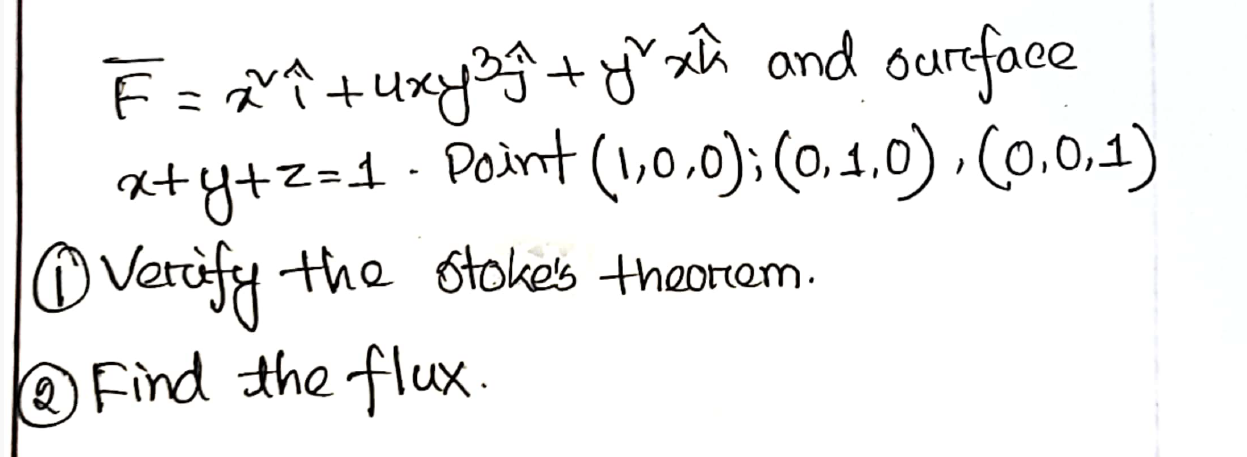 F̅ = x²î + 4xy³ĵ + y²xk̂ and surface
x+y+z=1. Point (1,0,0); (0,1,0), (0,0,1)
① Verify the stoke's theorem.
② Find the flux.